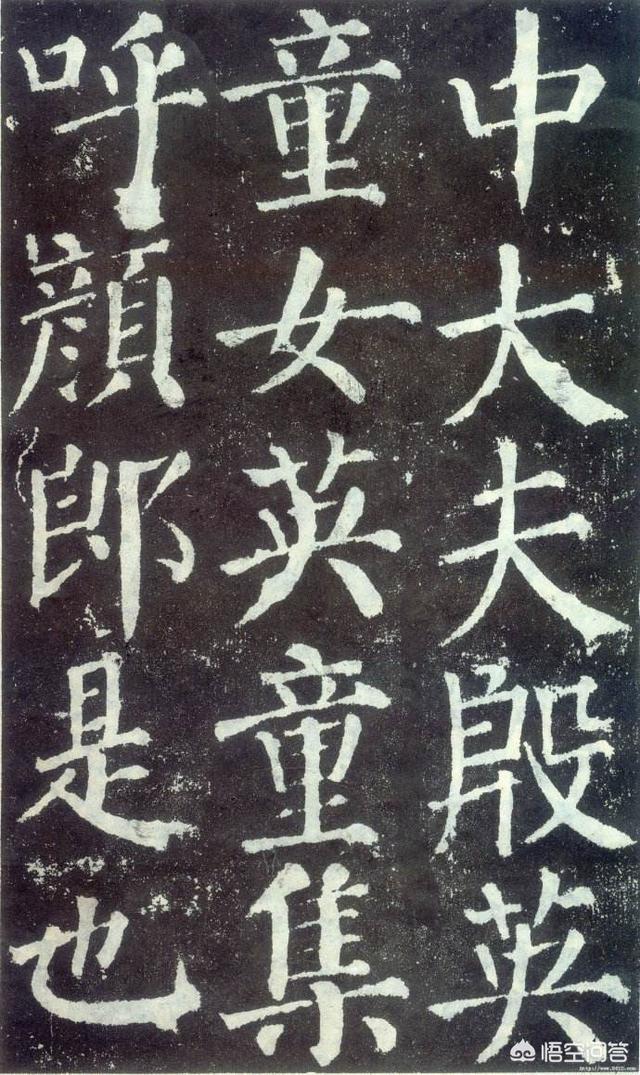 中大夫殷英
童女英童集
呼顔郎是也
悟空问答